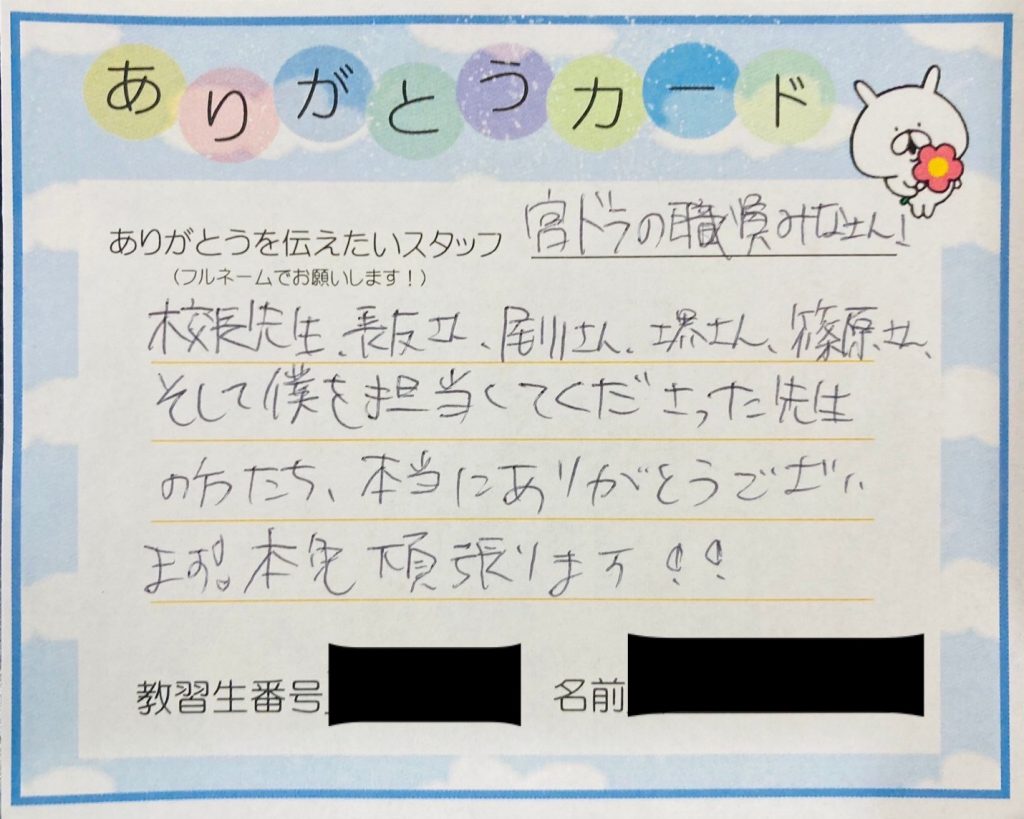 ありがとうカード
ありがとうを伝えたいスタッフ 宮ドラの職員みなさん!
(フルネームでお願いします!)
校長先生、長友さん、尾川さん、堺さん、篠原さん、
そして僕を担当してくださった先生
の方たち、本当にありがとうござい
ます。本免頑張ります!!
教習生番号
名前